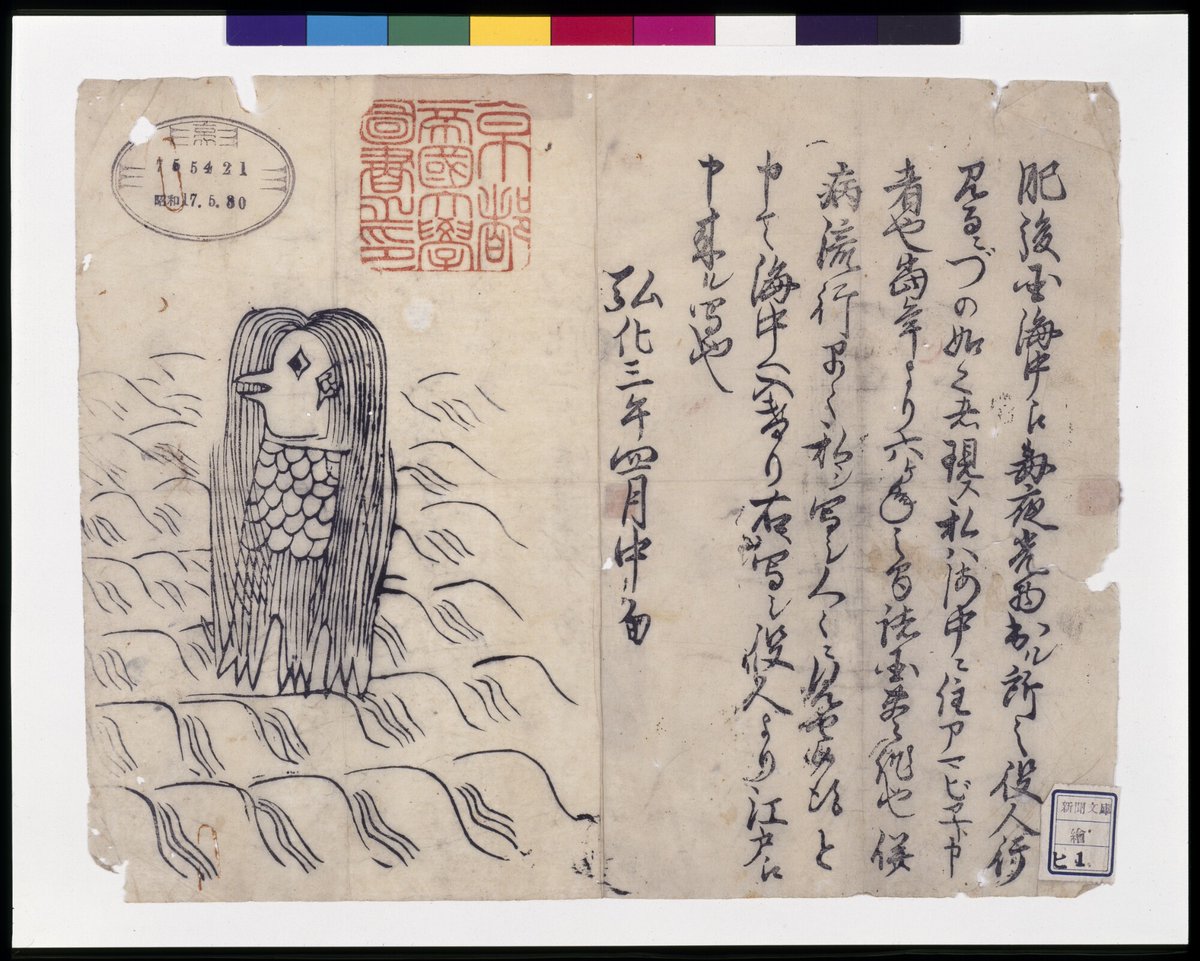 肥後国海中え毎夜光物出ル所之役人行
見るニづの如く之者現ス私ハ海中ニ住アマビヱト申
者也當年より六ヶ年之間諸国豊作也併
病流行早々私シ写シ人々ニ見せ候得と
申て海中へ入けり右写シ役人より江戸え
申来ル写也
弘化三年四月中旬
京都
帝國大學
圖書之印
755421
昭和17.5.30
新聞文庫
繪
ヒ1.